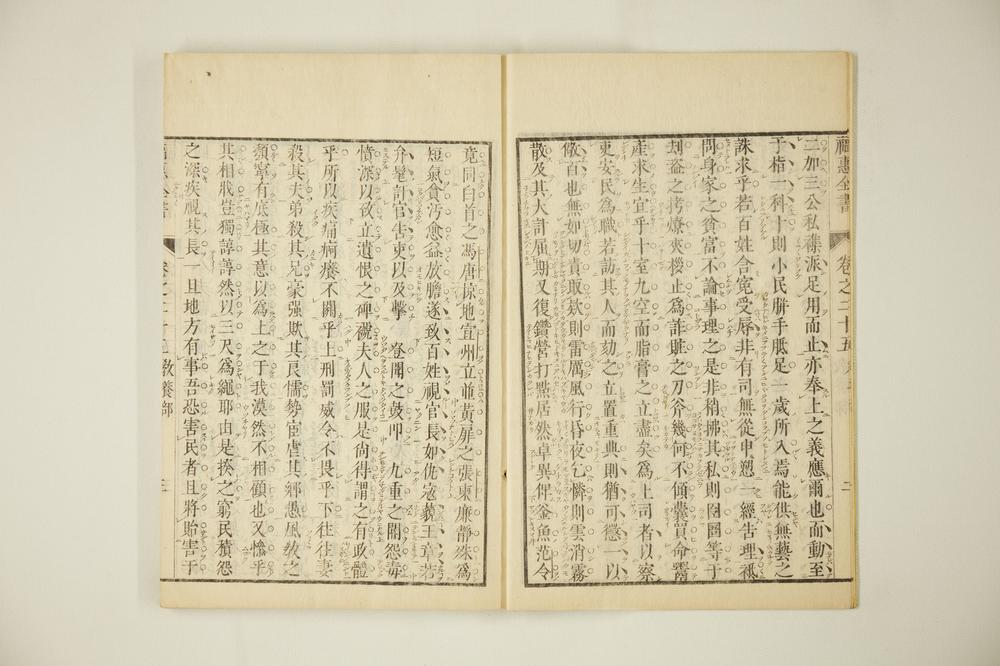 福惠全書 卷之二十五 二
二加三公私襍派足用而止亦奉上之義應爾也而動至
于楛一科十則小民胼手胝足一歲所入焉能供無藝之
誅求乎若百姓含寃受辱非有司無從申愬一經告理祗
問身家之貧富不論事理之是非稍拂其私則囹圄等于
刦盗之拷燎夾椤止為詐賍之刃斧幾何不傾囊買命鬻
產求生宜乎十室九空而脂膏之立盡矣為上司者以察
吏安民為職若訪其人而劾之立置重典則猶可懲一以
儆百也無如切責取欵則雷厲風行昏夜乞憐則雲消霧
散及其大計届期又復鑽營打點居然卓異俾釜魚范令
竟同白首之馮唐掠地宜州立並黃扉之張柬廉静殊為
短氣貪汚愈益放膽遂致百姓視官長如仇寇藐王章若
弁髦訐官告吏以及擊 登聞之鼓叩 九重之閽怨毒
憤深以欲立遺恨之碑襯夫人之服是尙得謂之有政體
乎所以疾痛痾癢不關乎上刑罰威令不畏乎下往往妻
殺其夫弟殺其兄豪强欺其良懦勢宦虐其鄉愚風敎之
頽寧有底極其意以為上之于我漠然不相顧也又憯乎
其相戕豈獨諄諄然以三尺為繩耶由是揆之窮民積怨
之深疾視其長一旦地方有事吾恐害民者且將貽害于
教養部 三